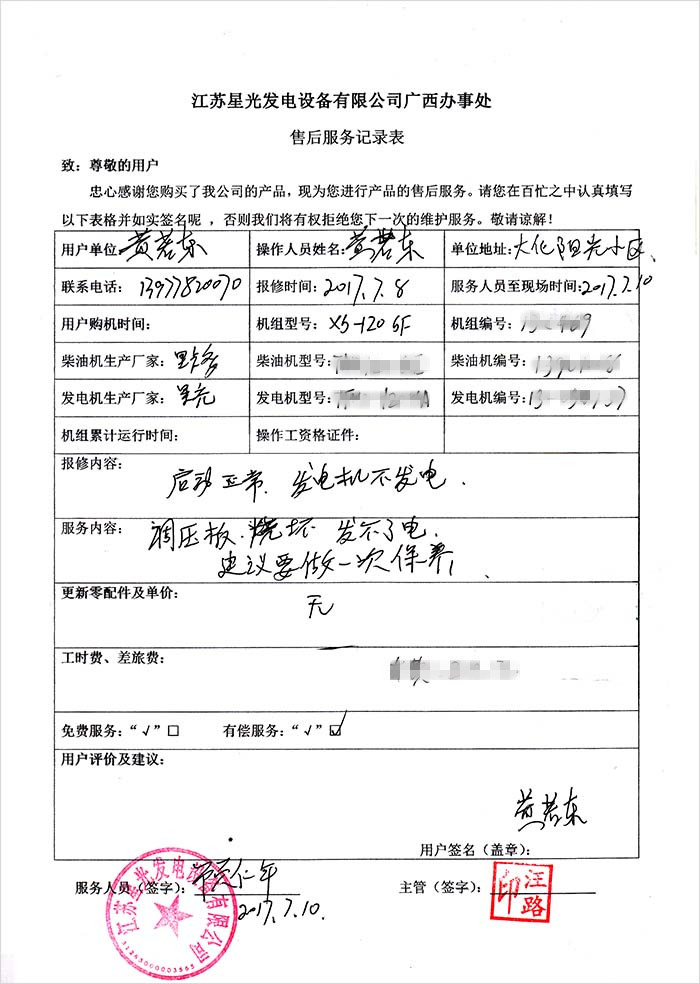 江苏星光发电设备有限公司广西办事处
售后服务记录表
致：尊敬的用户
忠心感谢您购买了我公司的产品，现为您进行产品的售后服务。请您在百忙之中认真填写
以下表格并如实签名呢 ，否则我们将有权拒绝您下一次的维护服务。敬请谅解！
用户单位 黄若东 操作人员姓名：黄若东 单位地址：大化阳光小区、
联系电话：13977820070 报修时间：2017.7.8 服务人员至现场时间：2017.7.10
用户购机时间： 机组型号：XS-120GF 机组编号：
柴油机生产厂家： 柴油机型号： 柴油机编号：
发电机生产厂家：星光 发电机型号： 发电机编号：
机组累计运行时间： 操作工资格证件：
报修内容：
启动正常．发电机不发电．
服务内容：调压板．烧坏 发不了电．
建议要做一次保养，
更新零配件及单价：
无
工时费、差旅费：
免费服务：“√”□ 有偿服务：“√”☑
用户评价及建议：
黄若东
用户签名（盖章）：
服务人员（签字）： 仁年 主管（签字）： 汪路印
2017.7.10
江苏星光发电设备有限公司